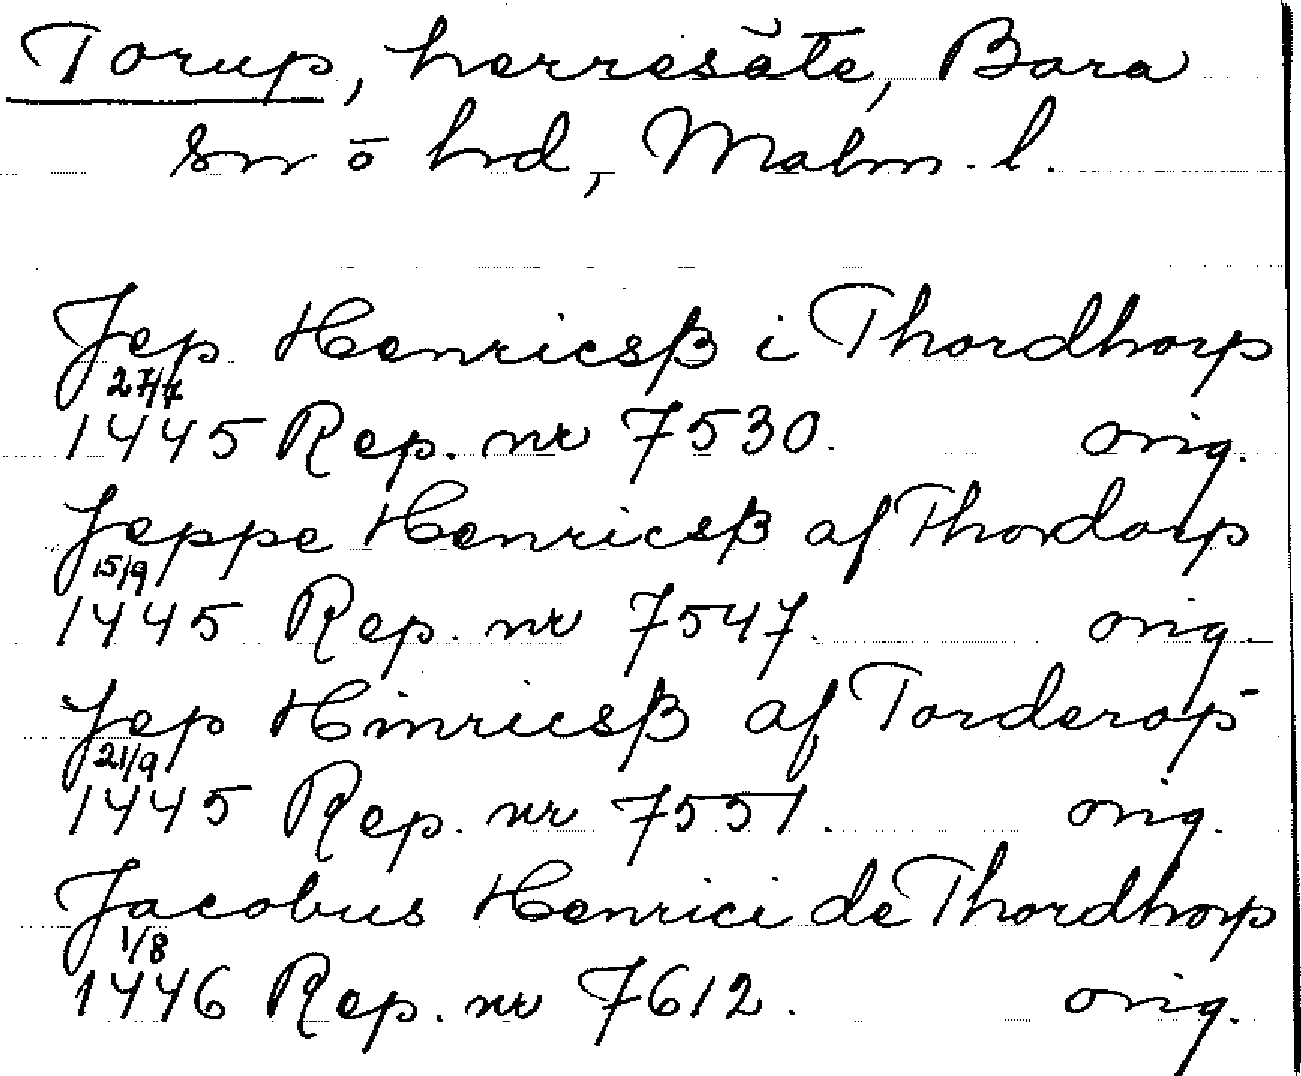 Torup, herresäte, Bara
sn o hd, Malm. l.
Jep Henricsß i Thordhorp
27/7
1445 Rep. nr 7530. orig.
Jeppe Henricsß af Thordorp
15/9
1445 Rep. nr 7547. orig.
Jep Hinricsß af Torderop
21/9
1445 Rep. nr 7551. orig.
Jacobus Henrici de Thordhorp
1/8
1446 Rep. nr 7612. orig.